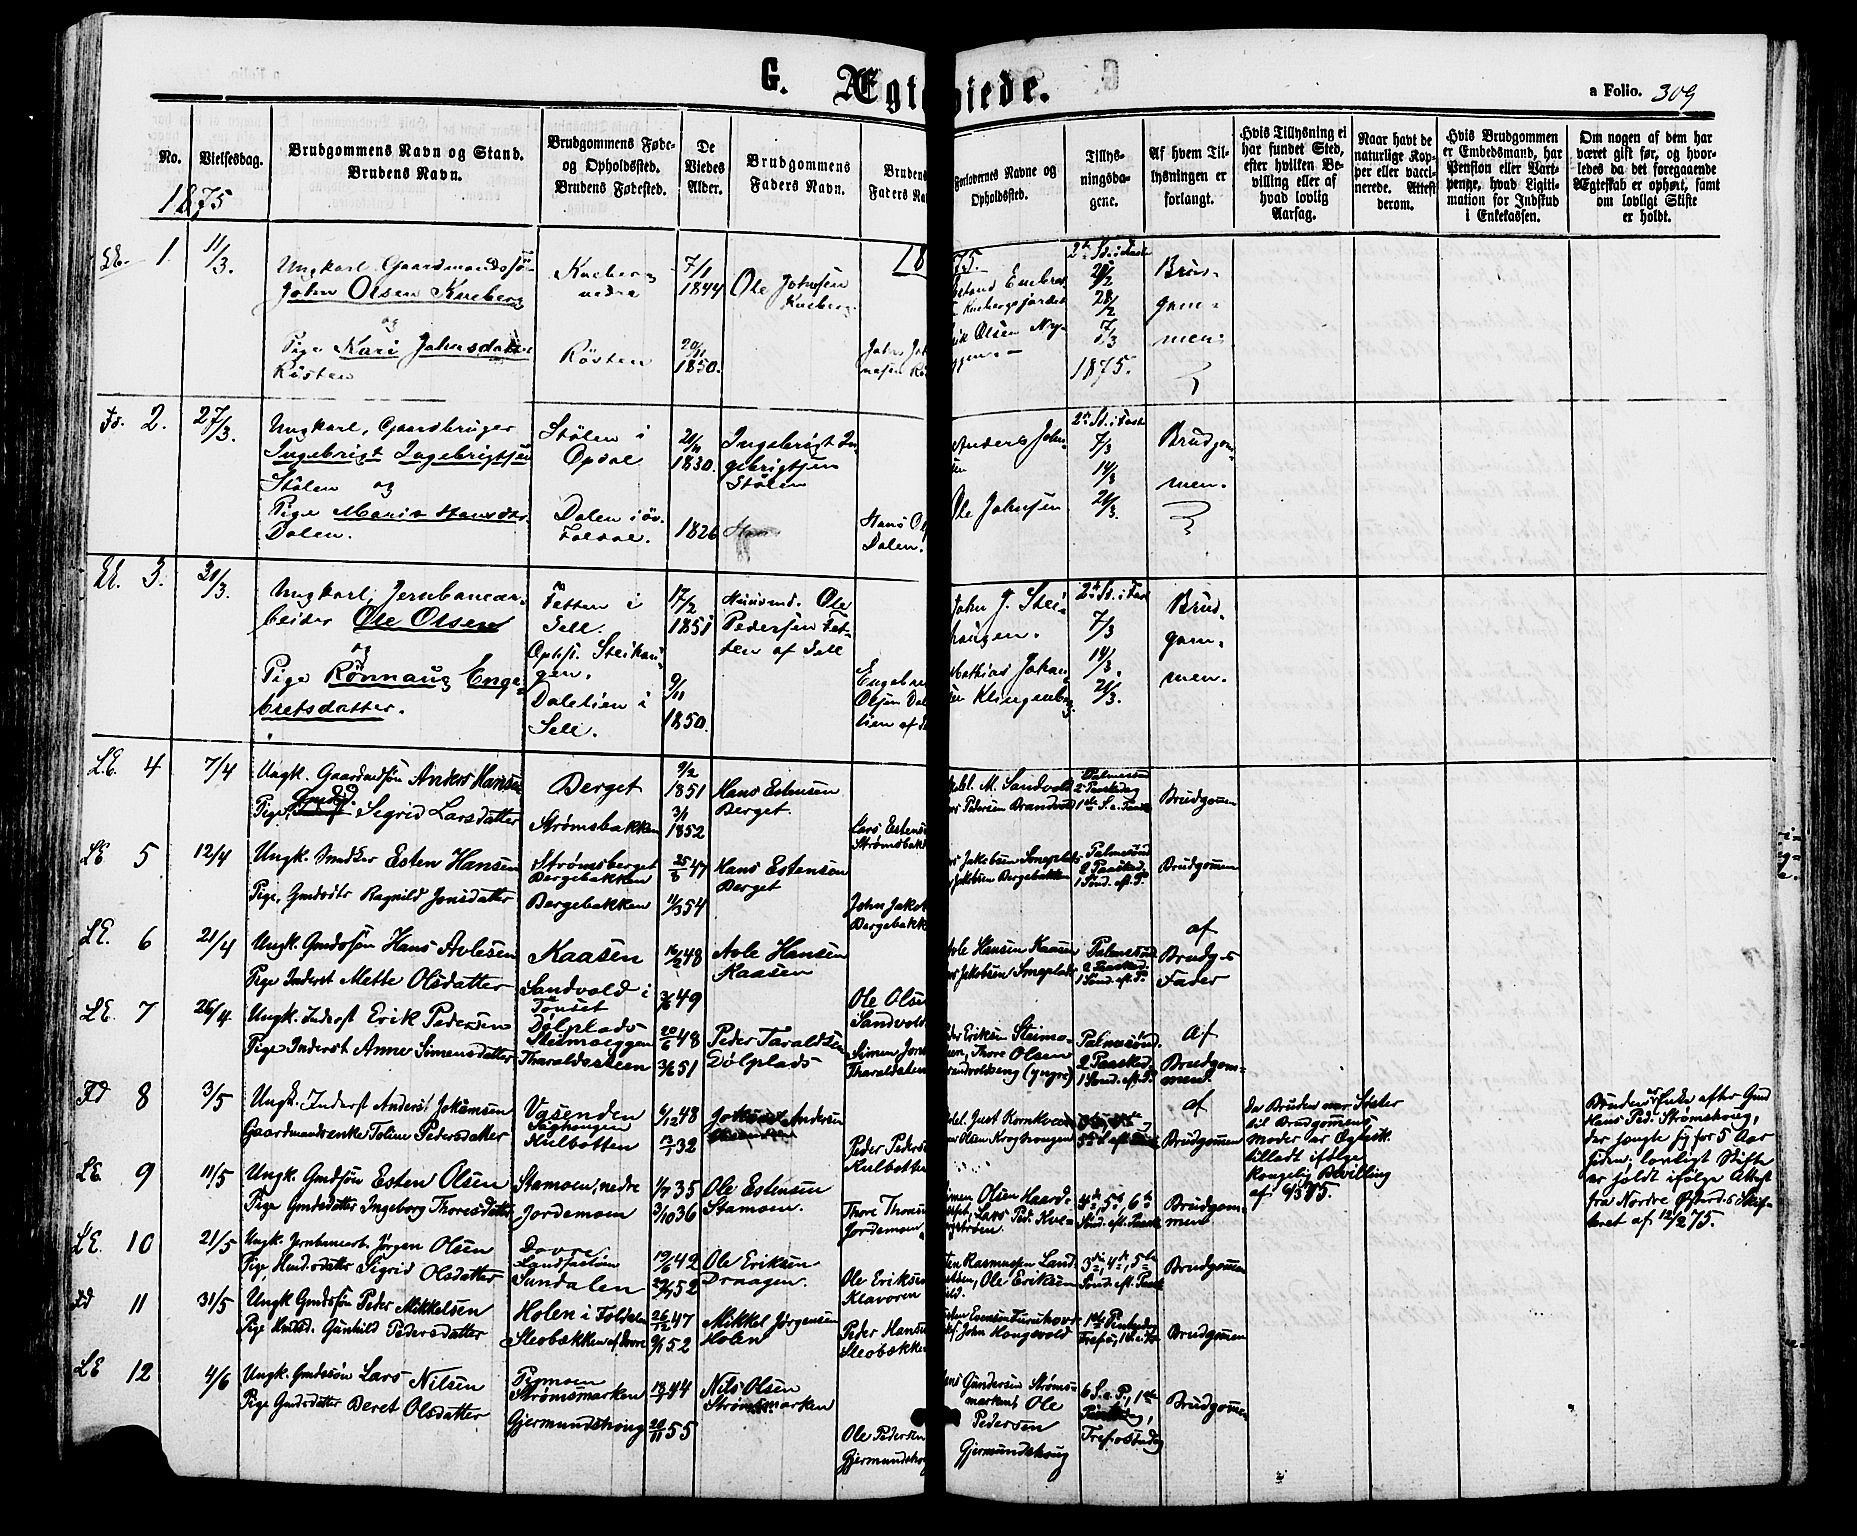 G. Ægteviede.
a Folio. 309
No.
Vielsesdag.
Brudgommens Navn og Stand.
Brudens Navn.
Brudgommens Føde-
og Opholdssted.
Brudens Fødested.
De
Viedes
Alder.
Brudgommens
Faders Navn.
Brudens
Faders Na
Forlovernes Navne og
Opholdssted.
Tillys-
ningsda-
gene.
Af hvem Til-
lysningen er
forlangt.
Hvis Tillysning ei
har fundet Sted,
efter hvilken Be-
villing eller af
hvad lovlig
Aarsag.
Naar havt de
naturlige Kop-
per eller vacci-
nerede. Attest
derom.
Hvis Brudgommen
er Embedsmand, har
Pension eller Vart-
penge, hvad Ligiti-
mation for Indskud
i Enkekassen.
Om nogen af dem har
været gift før, og hvor-
ledes da det foregaaende
Ægteskab er ophørt, samt
om lovligt Skifte
er holdt.
1875
1. 11/3.
Ungkarl, Gaardmandssøn
John Olsen Kneberg
og
Pige Kari Johnsdatter
Røsten
Kneberg
nedre
Røsten
7/1
1844
20/11
1850.
Ole Johnsen
Kneberg
2den S. i Faste
28/2
7/3
1875.
Brud-
gom-
men
Fd. 2. 27/3.
Ungkarl, Gaardbruger
Ingebrigt Ingebrigtsen
Stølen og
Pige Marit Hansdtr
Dalen.
Stølen i
Opdal
Dalen i øv.
Foldal.
1830.
1826
Ingebrigt In-
gebrigtsen
Stølen
Hans Ol
Dalen.
Anders John-
sen
Ole Johnsen
7/3
14/3
21/3.
Brudgom-
men.
3. 31/3.
Ungkarl, Jernbanear-
beider Ole Olsen
og
Pige Rønnaug Enge-
bretsdatter.
Tetten i
Sell.
Opht. Steihau-
gen.
Dalelien i
Sell.
17/2
1851
9/11
1850.
Husmd. Ole
Pedersen Tet-
ten af Sell
Engebret
Olsen Dale
lien af S
John J. Stei-
haugen.
Mathias Johan-
sen Klingenberg
7/3
14/3.
21/3.
Brud-
gom-
men.
L.E. 4 7/4
Ungk. Gaardmdsøn Anders Hansen
Pige, Sigrid Larsdatter
Berget
Strømsbakken
9/2
1851
3/1
1852
Hans Estensen
Berget.
Lars Estens
Strømsbak
M. Sandvold
Pedersen Brandvold
Palmesønd
2 Paaskedag
1ste S. e. Paaske
Brudgommen
LE 5 12/4
Ungk. Snedker Esten Hansen
Pige, Gmdsdtr Ragnild Jonsdatter
Strømsberget
Bergebakken
Bergebakken
47
54
Hans Estensen
Berget
John Jakob
Bergebakk
Jakobsen Smeplads
Jakobsen Bergebakken
Palmesønd
2 Paaskd.
1 Sønd. eft. P.
Brudgommen
LE. 6 21/4
Ungk. Gmdssøn Hans Avlesen
Pige Inderst Mette Olsdatter
Kaasen
Sandvold i
Tønset
48
49
Avle Hansen
Kaasen
Ole Olsen
Sandvold.
Avle Hansen Kaasen
Jakobsen Smeplads
Palmesønd
2 Paaskd.
1 Sønd. eft. P.
af
Brudg.s
Fader
LE. 7 26/4
Ungk. Inderst Erik Pedersen
Pige Inderst Anne Simensdatter
Dølplads
Steimoeggen
Tharaldsteen
20/6 48
3/6 51
Peder Taraldsen
Dølplads
Simen Jons
Tharaldsteen
Peder Eriksen Steimo-
eggen, Thore Olsen
Brandvoldseng (yngre)
Palmesønd.
2 Paaskd.
1 Sønd. eft. P.
Af
Brudgom-
men.
Fd 8 3/5
Ungk. Inderst Anders Jokumsen
Gaardmandsenke Toline Pedersdatter
Vasenden
Kulbotten
6/12 48
32
Jokum Andersen
Peder Peders
Kulbotten
Just Kornkveen
Olsen Kroghaugen
af
Brudgommen
Da Bruden var Søster
til Brudgommens
Moder er Ægtesk.
tilladt ifølge
Kongelig Bevilling
Bruden er Enke efter Gmd
Hans Ped. Strømshoug,
der
siden; lovligt Skifte
er holdt ifølge Attest
fra Nordre Østerd.s Skif-
teret af 12/2 75.
LE 9 11/5
Ungk. Gmdssøn Esten Olsen
Pige Gmdsdatter Ingeborg Thoresdatter
Stamoen, nedre
Jordemoen
1/7 35
3/10 36
Ole Estensen
Stamoen.
Thore Thores
Jordemoen
Simen Olsen Haarde-
Lars Ped. Kve-
bergstrøm.
4de, 5te, 6te
Sønd. eft. Paaske
Brudgom-
men
LE. 10 21/5
Ungk. Jernbanearb. Jørgen Olsen
Pige, Husm.sdatter Sigrid Olsdatter
Dovre,
Sundalen
42
52
Ole Eriksen
Draagen.
Ole Eriksen
Klavoren
Rasmussen Land-
Ole Eriksen
3die, 4de, 5te
Sønd. eft. Paask
Brudgommen
Fd 11 31/5
Ungk Gmdssøn Peder Mikkelsen
Pige Gunhild Pedersdatter
Holen i Foldalen
Sleobækken af Dovre
26/12 47
52
Mikkel Jørgensen
Holen
Peder Hans
Sleobækken
Evensen Furuhovd
John Kongsvold
1ste Pinsedag
Brudgommen
LE 12 4/6
Ungk. Gmdssøn Lars Nilsen
Pige Gmdsdatter Beret Olsdatter
Strømsmarken
Gjermundshoug
44
20/11 55
Nils Olsen
Strømsmarken
Ole Pedersen
Gjermundshoug
Gundersen Strøms-
marken, Ole
Pedersen
Gjermundshoug
6 S. e. P., 1ste
Pinsedag,
Tref.søndag
Brudgomme